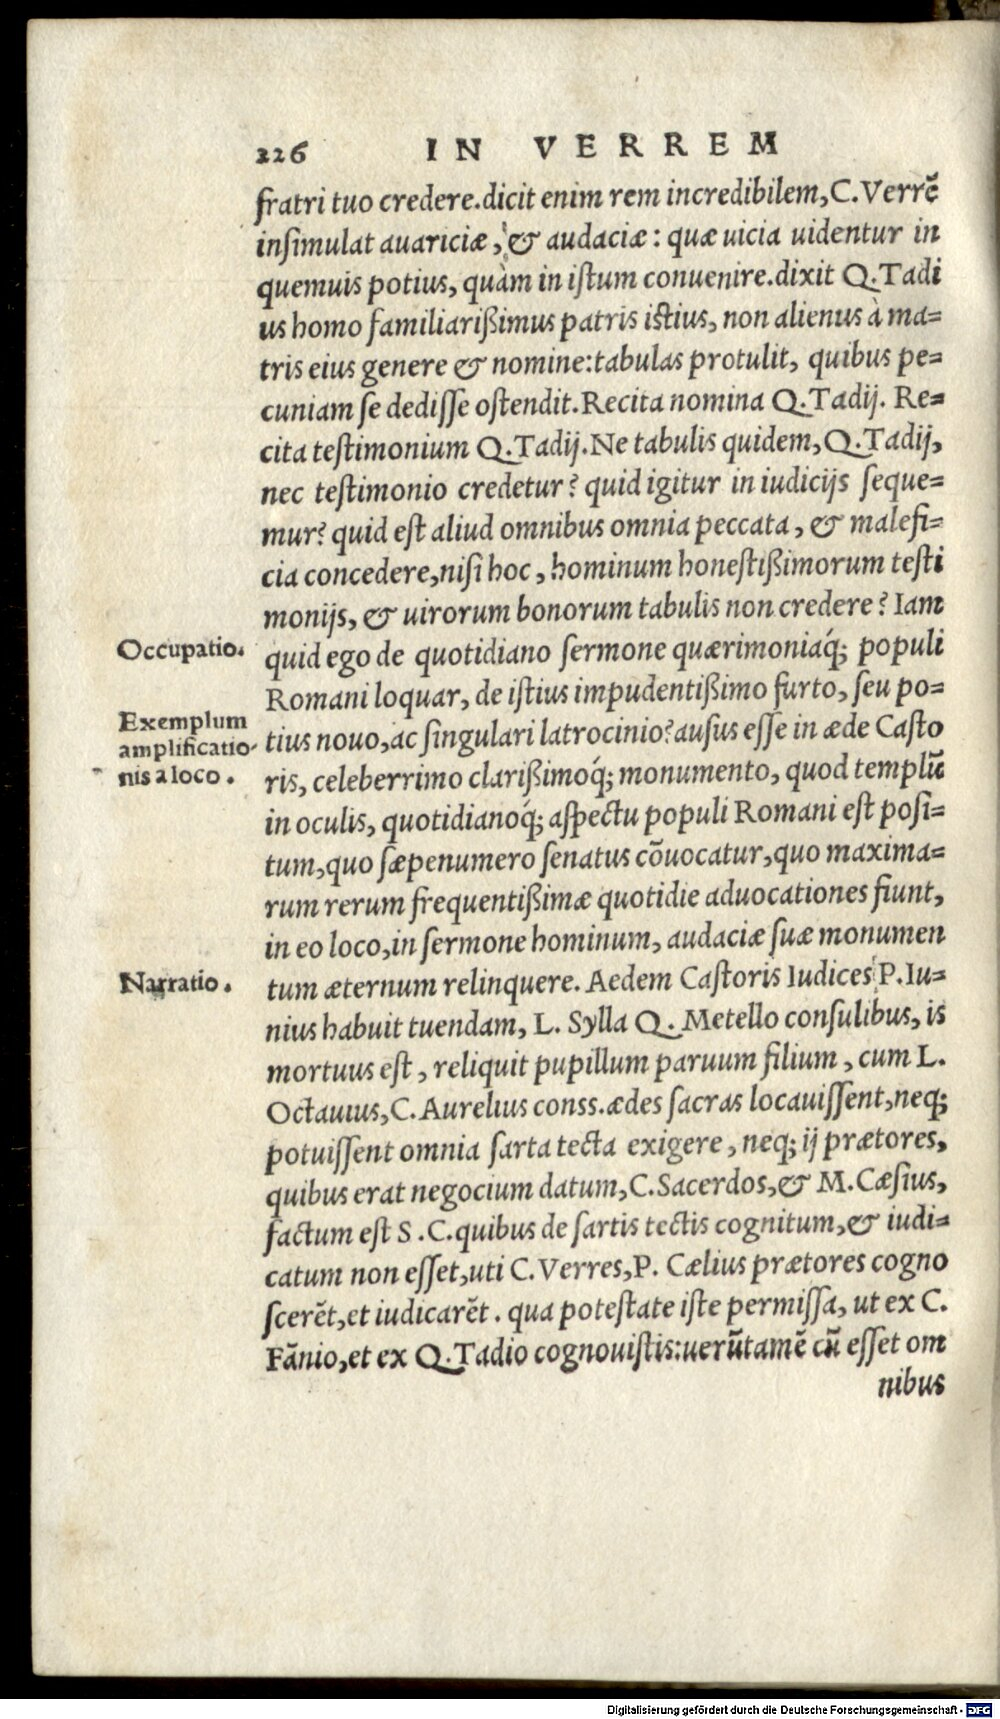 226 IN VERREM
fratri tuo credere.dicit enim rem incredibilem,C.Verrē
insimulat auariciæ, & audaciæ: quæ uicia uidentur in
quemuis potius, quàm in istum conuenire.dixit Q.Tadi
us homo familiarißimus patris istius, non alienus à ma=
tris eius genere & nomine:tabulas protulit, quibus pe=
cuniam se dedisse ostendit.Recita nomina Q.Tadij. Re=
cita testimonium Q.Tadij.Ne tabulis quidem,Q.Tadij,
nec testimonio credetur? quid igitur in iudicijs seque=
mur? quid est aliud omnibus omnia peccata, & malefi=
cia concedere,nisi hoc, hominum honestißimorum testi
monijs, & uirorum bonorum tabulis non credere? Iam
Occupatio.
quid ego de quotidiano sermone quærimoniaq́; populi
Romani loquar, de istius impudentißimo furto, seu po=
Exemplum
amplificatio-
nis a loco.
tius nouo,ac singulari latrocinio?ausus esse in æde Casto
ris, celeberrimo clarißimoq́; monumento, quod templū
in oculis, quotidianoq́; aspectu populi Romani est posi=
tum,quo sæpenumero senatus cōuocatur,quo maxima=
rum rerum frequentißimæ quotidie aduocationes fiunt,
in eo loco,in sermone hominum, audaciæ suæ monumen
Narratio.
tum æternum relinquere. Aedem Castoris Iudices P.Iu=
nius habuit tuendam, L. Sylla Q. Metello consulibus, is
mortuus est, reliquit pupillum paruum filium, cum L.
Octauius,C.Aurelius conss.ædes sacras locauissent,neq;
potuissent omnia sarta tecta exigere, neq; ij prætores,
quibus erat negocium datum,C.Sacerdos,& M.Cæsius,
factum est S.C.quibus de sartis tectis cognitum,& iudi=
catum non esset,uti C.Verres,P. Cælius prætores cogno
scerēt,et iudicarēt. qua potestate iste permissa, ut ex C.
Fānio,et ex Q.Tadio cognouistis:uerūtamē cū esset om
nibus
Digitalisierung gefördert durch die Deutsche Forschungsgemeinschaft - DFG